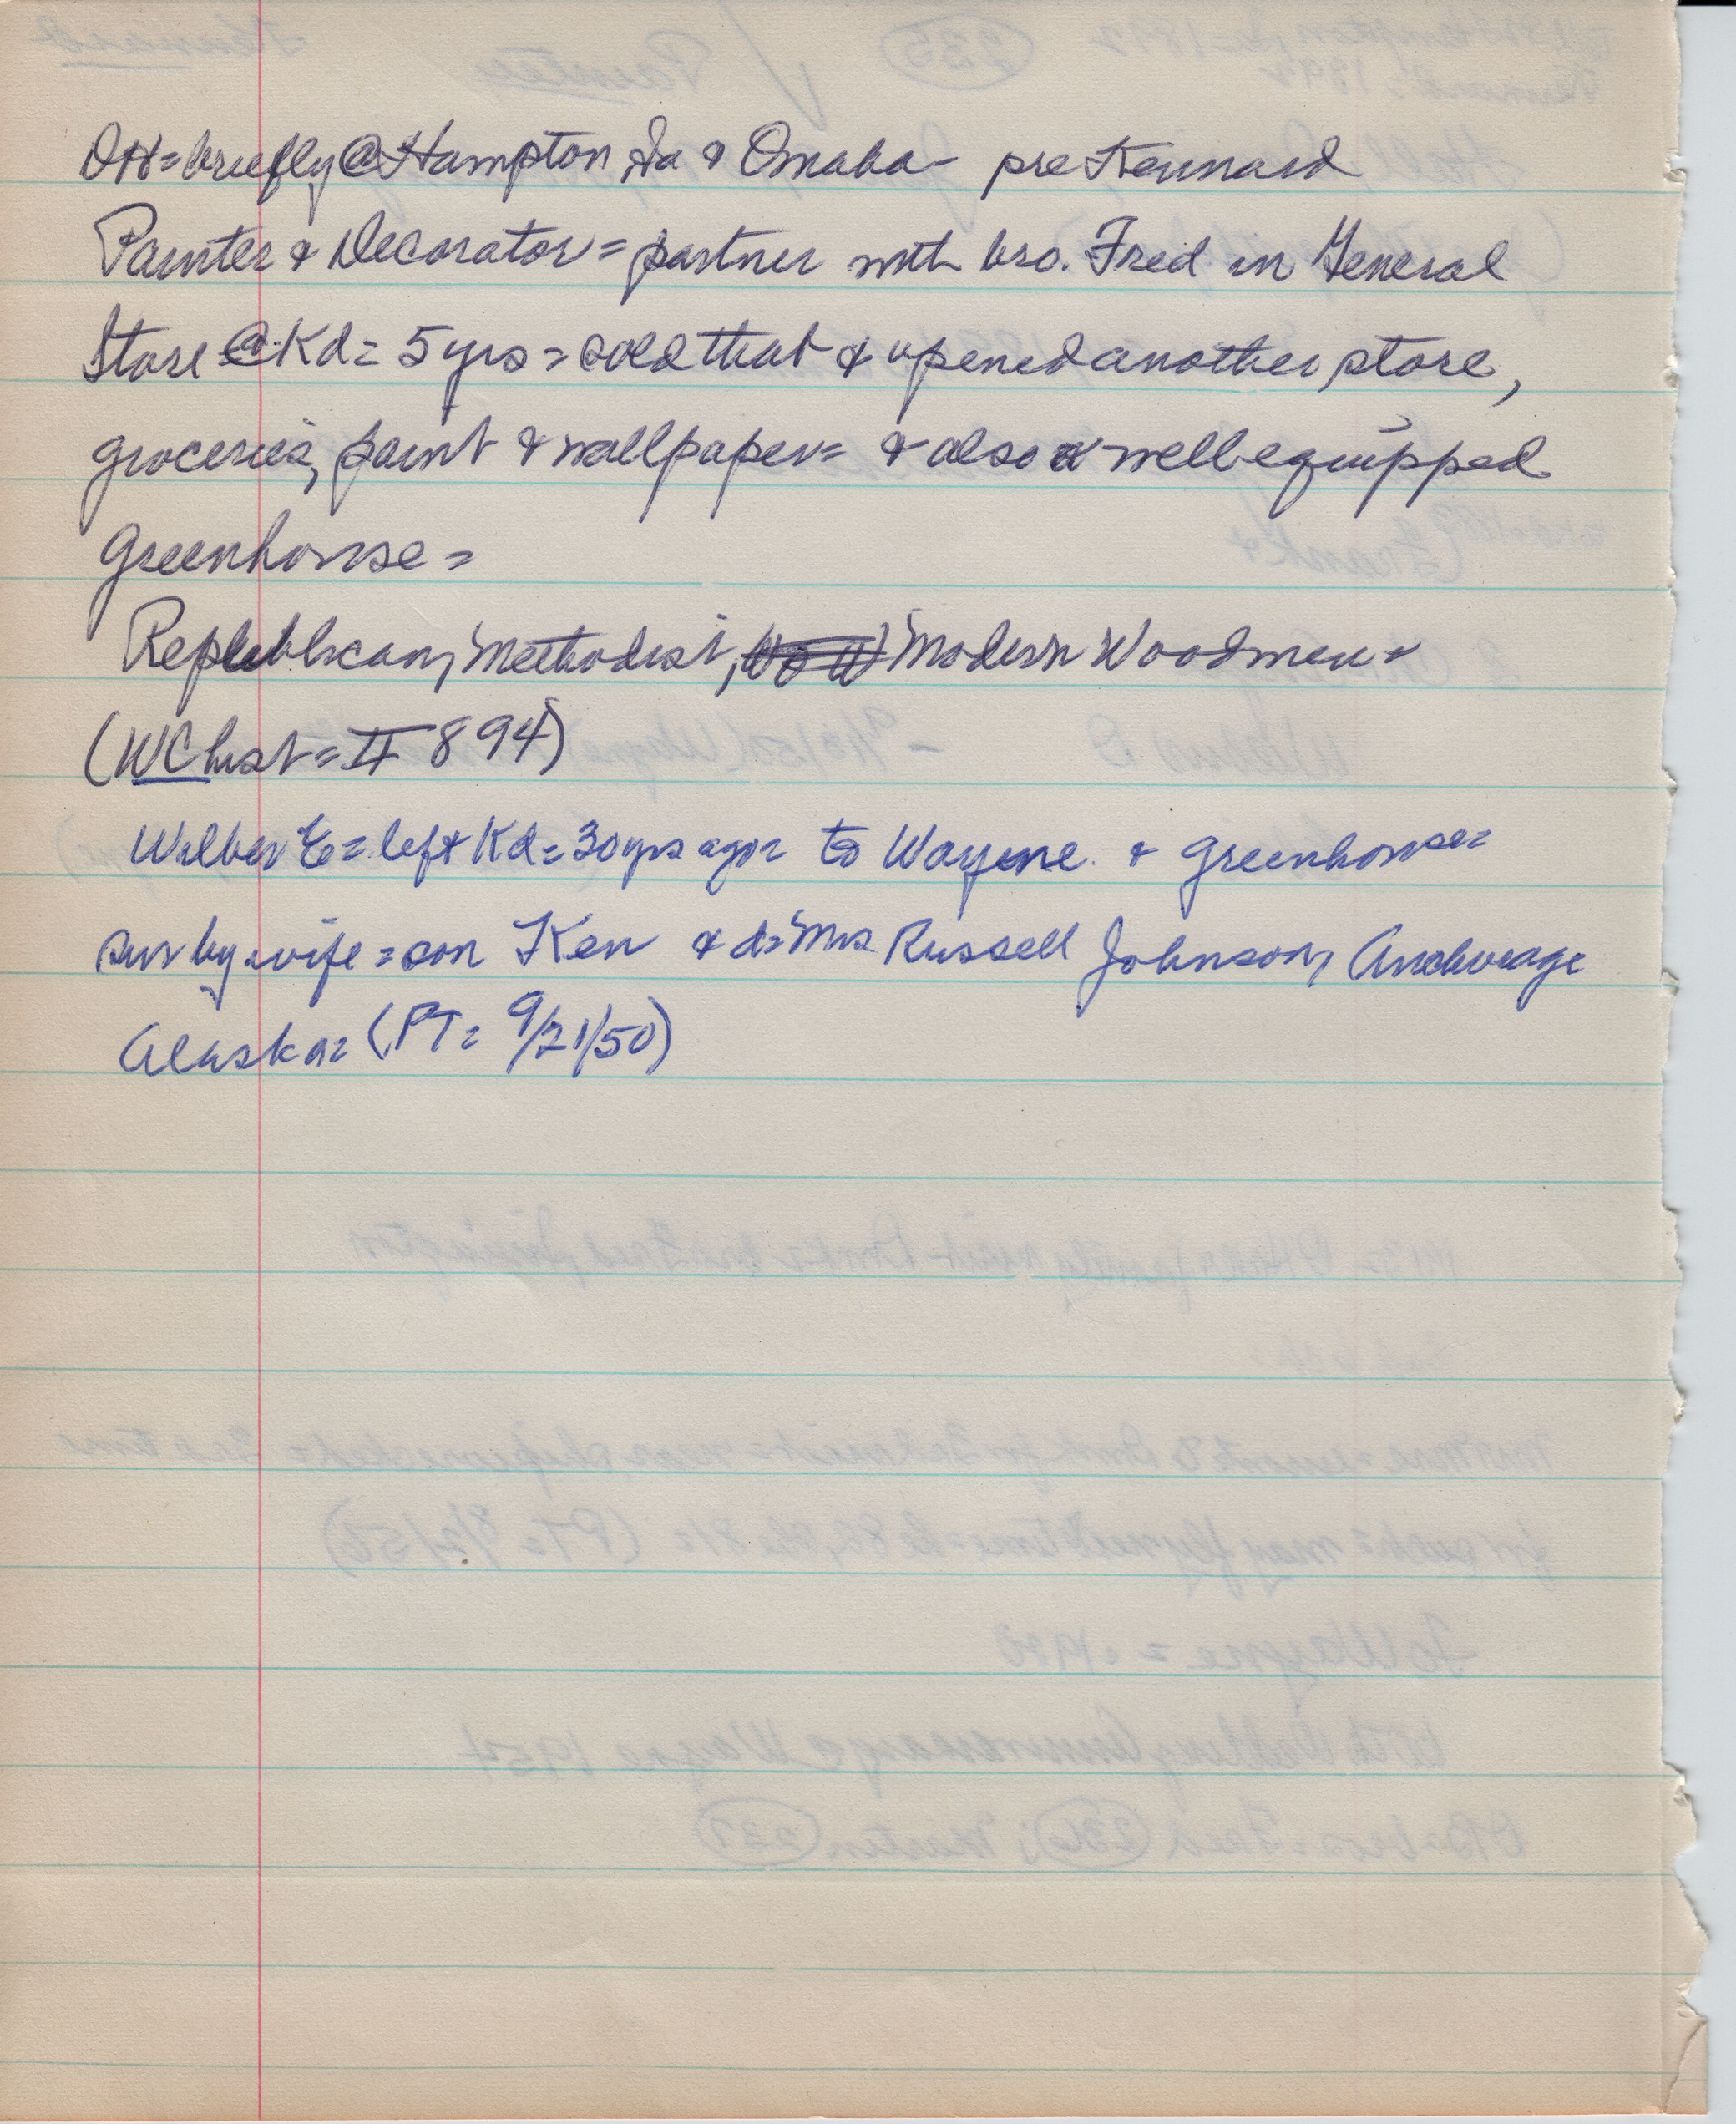 OH = briefly @ Hampton, Ia & Omaha - pre Kennard
Painter & Decorator = partner with bro. Fred in General
Store @ Kd = 5 yrs = sold that & opened another store,
groceries, paint & wallpaper = & also a well equipped
Greenhouse =
Republican, Methodist, WOW Modern Woodmen =
(WC hist = II 894)
Wilber E = left Kd = 30 yrs ago = to Wayne & greenhouse =
surv by wife = son Ken & d = Mrs Russell Johnson, Anchorage
Alaska = (PT = 9/21/50)